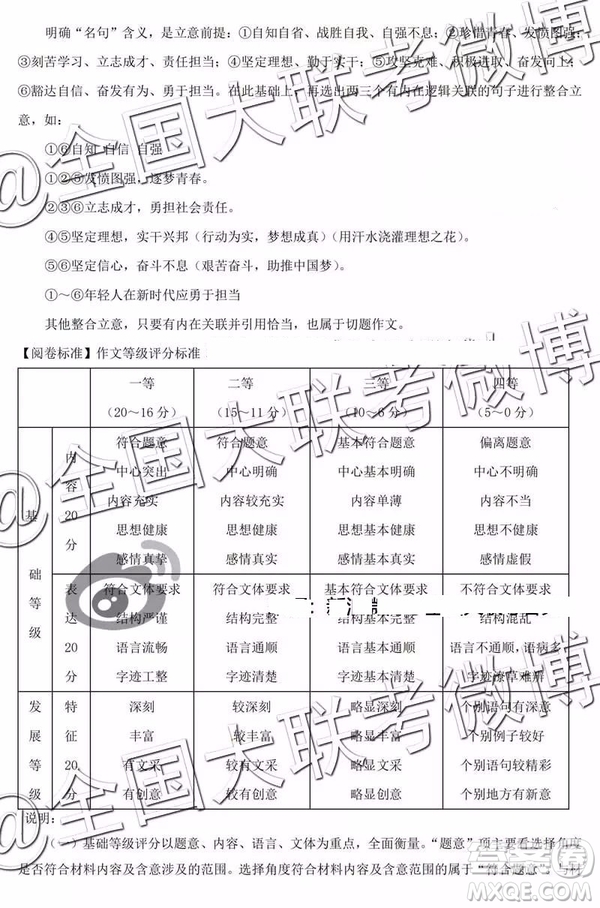 明确“名句”含义，是立意前提：①自知自省、战胜自我、自强不息；②珍惜青春、发愤图强；
③刻苦学习、立志成才、勇于担当；④坚定理想、勤于实干；⑤攻坚克难、积极进取、奋发向上；
⑥豁达自信、奋发有为、勇于担当。在此基础上，再选出两三个有内在逻辑关联的句子进行整合立
意，如：
①⑥自知 自信 自强
①②⑤发愤图强，逐梦青春。
②③⑥立志成才，勇担社会责任。
④⑤坚定理想，实干兴邦（行动为实，梦想成真）（用汗水浇灌理想之花）。
⑤⑥坚定信心，奋斗不息（艰苦奋斗，助推中国梦）。
①～⑥年轻人在新时代应勇于担当
其他整合立意，只要有内在关联并引用恰当，也属于切题作文。
【阅卷标准】作文等级评分标准
一等 二等 三等 四等
（20～16 分） （15～11 分） （10～6 分） （5～0 分）
基础等级
内容20分
符合题意 符合题意 基本符合题意 偏离题意
中心突出 中心明确 中心基本明确 中心不明确
内容充实 内容较充实 内容单薄 内容不当
思想健康 思想健康 思想基本健康 思想不健康
感情真挚 感情真实 感情基本真实 感情虚假
表达20分
符合文体要求 符合文体要求 基本符合文体要求 不符合文体要求
结构严谨 结构完整 结构基本完整 结构混乱
语言流畅 语言通顺 语言基本通顺 语言不通顺，语病多
字迹工整 字迹清楚 字迹基本清楚 字迹潦草难辨
发展等级
特征20分
深刻 较深刻 略显深刻 个别语句有深意
丰富 较丰富 略显丰富 个别例子较好
有文采 较有文采 略有文采 个别语句较精彩
有创意 较有创意 略有创意 个别地方有新意
说明：
（一）基础等级评分以题意、内容、语言、文体为重点，全面衡量。“题意”项主要看选择角度
是否符合材料内容及含意涉及的范围。选择角度符合材料内容及含意范围的属于“符合题意”，与材
@全国大联考微博
@全国大联考微博
@全国大联考微博